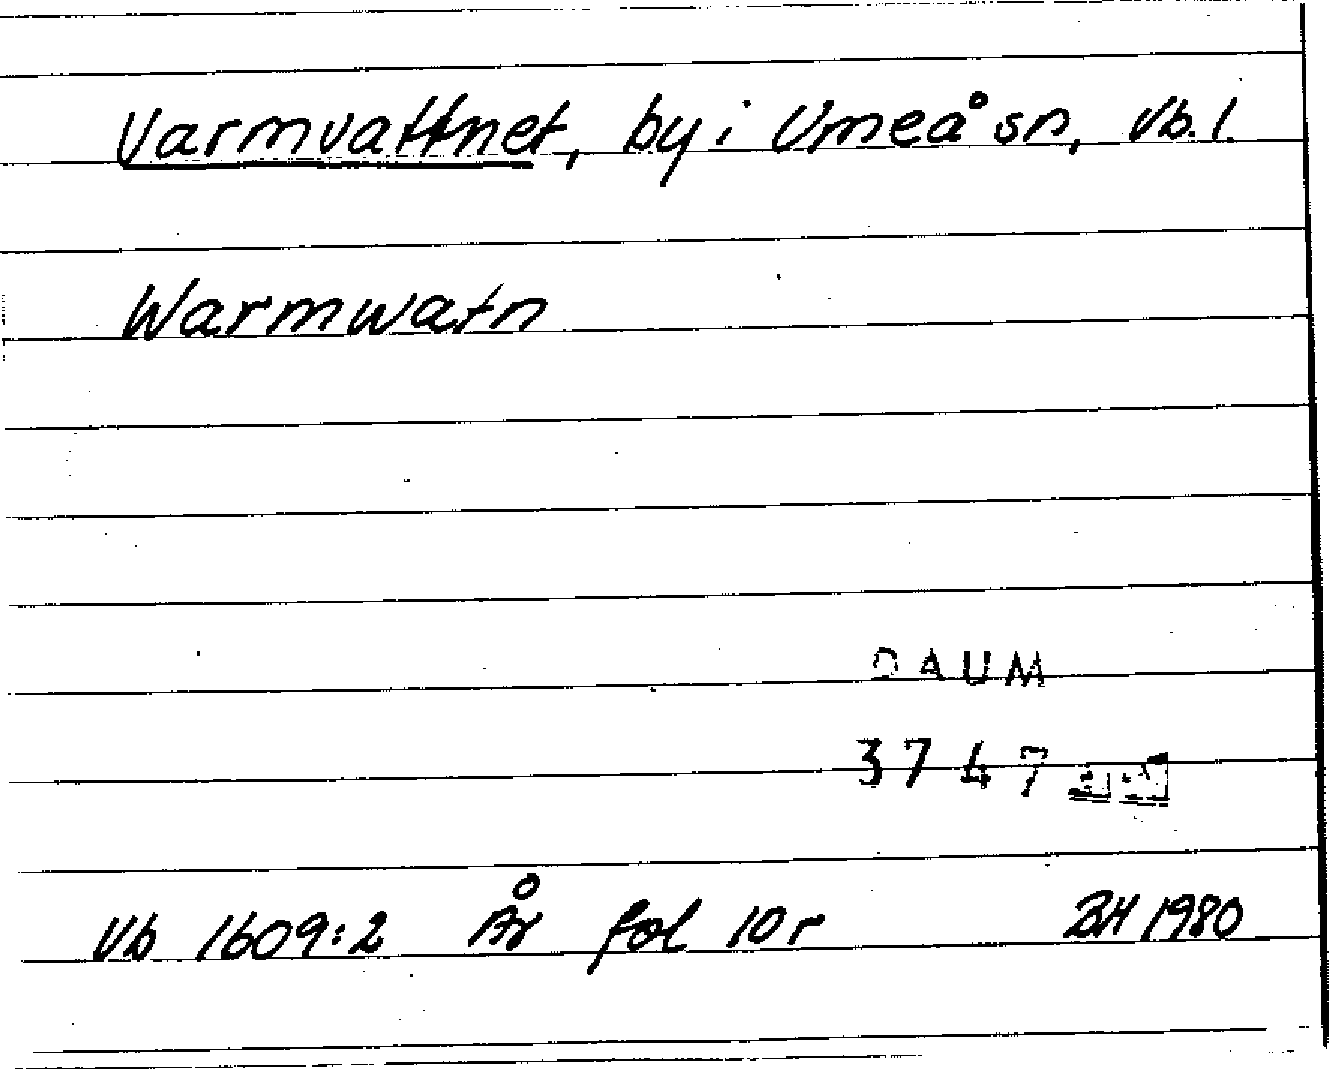 Varmvattnet, by i Umeå sn, Vb. l.
Warmwatn
DAUM
3747
Vb 1609:2 År fol 10 r BH 1980